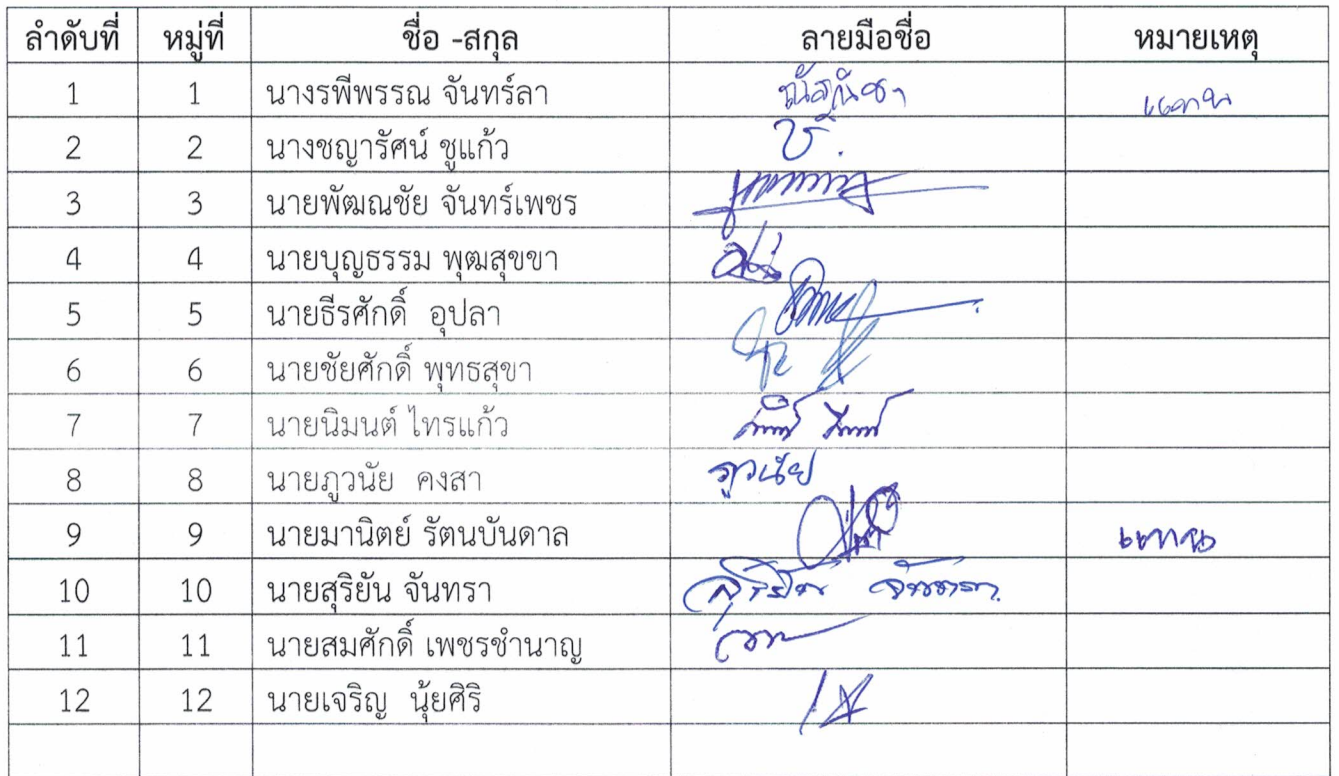 ลำดับที่ หมู่ที่ ชื่อ -สกุล ลายมือชื่อ หมายเหตุ
1 1 นางรพีพรรณ จันทร์ลา แทน
2 2 นางชญารัศน์ ชูแก้ว
3 3 นายพัฒณชัย จันทร์เพชร
4 4 นายบุญธรรม พุฒสุขขา
5 5 นายธีรศักดิ์ อุปลา
6 6 นายชัยศักดิ์ พุทธสุขา
7 7 นายนิมนต์ ไทรแก้ว
8 8 นายภูวนัย คงสา ภูวนัย
9 9 นายมานิตย์ รัตนบันดาล แทน
10 10 นายสุริยัน จันทรา สุริยัน จันทรา
11 11 นายสมศักดิ์ เพชรชำนาญ
12 12 นายเจริญ นุ้ยศิริ